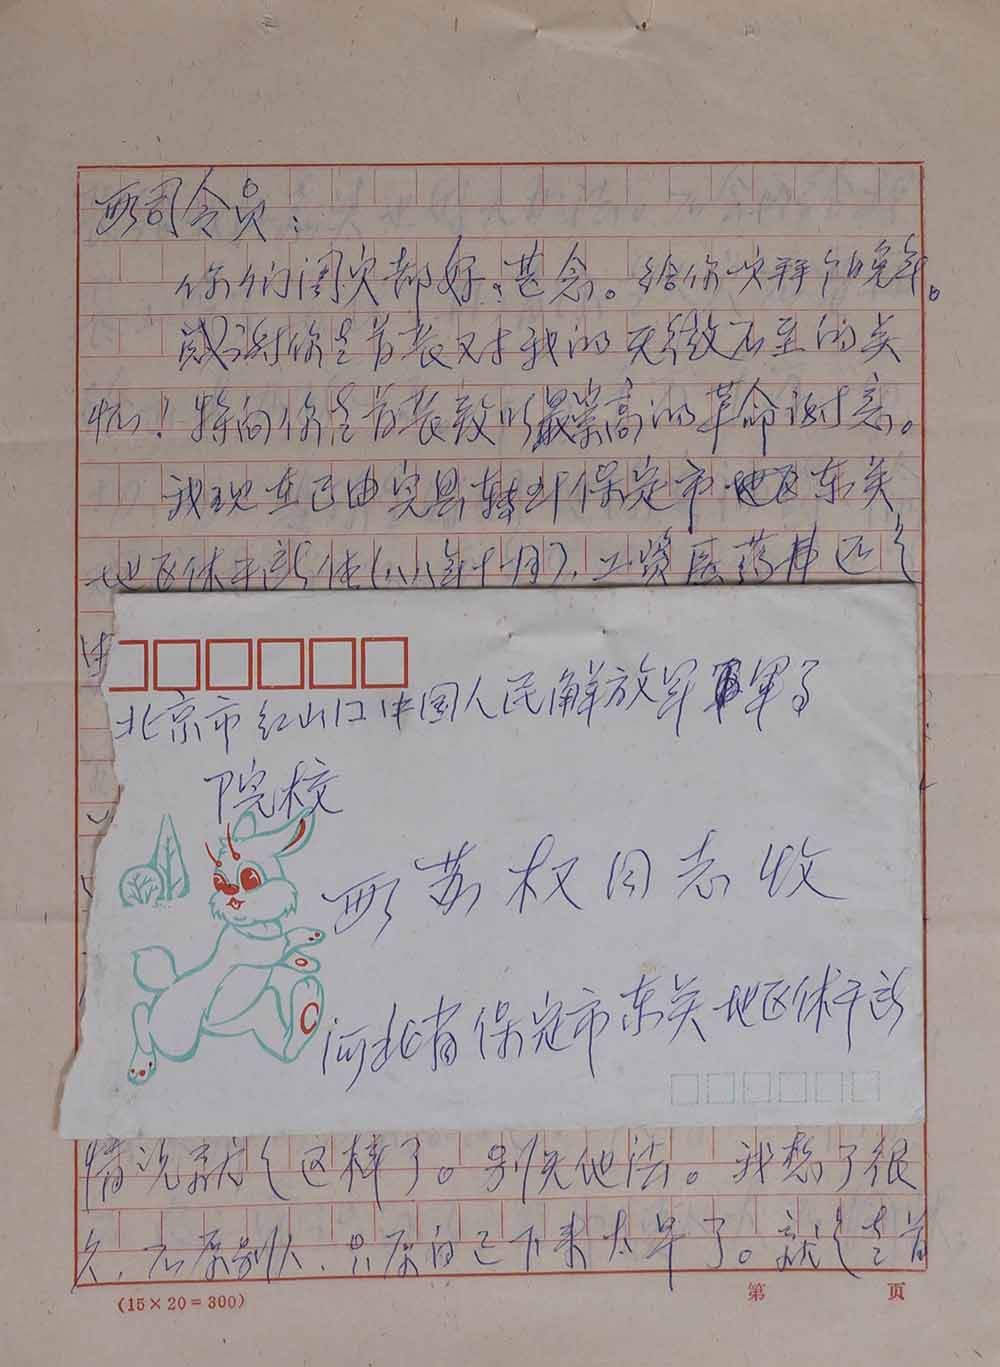 司令员：
你们阖家都好，甚念。给你
感谢你老首长对我的无微不至的关
怀！特向你老首长致以最崇高的革命谢意。
我现在已由完县转到保定市地区东关
地区休干所住(八八年十月)，工资医药费还是
北京市红山口中国人民解放军军事
院校
苏权同志收
河北省保定市东关地区休干所
情况就是这样了。别无他法。我想了很
久，不原别人，只原自己下来太早了。就是老首
(15×20=300)
第 页